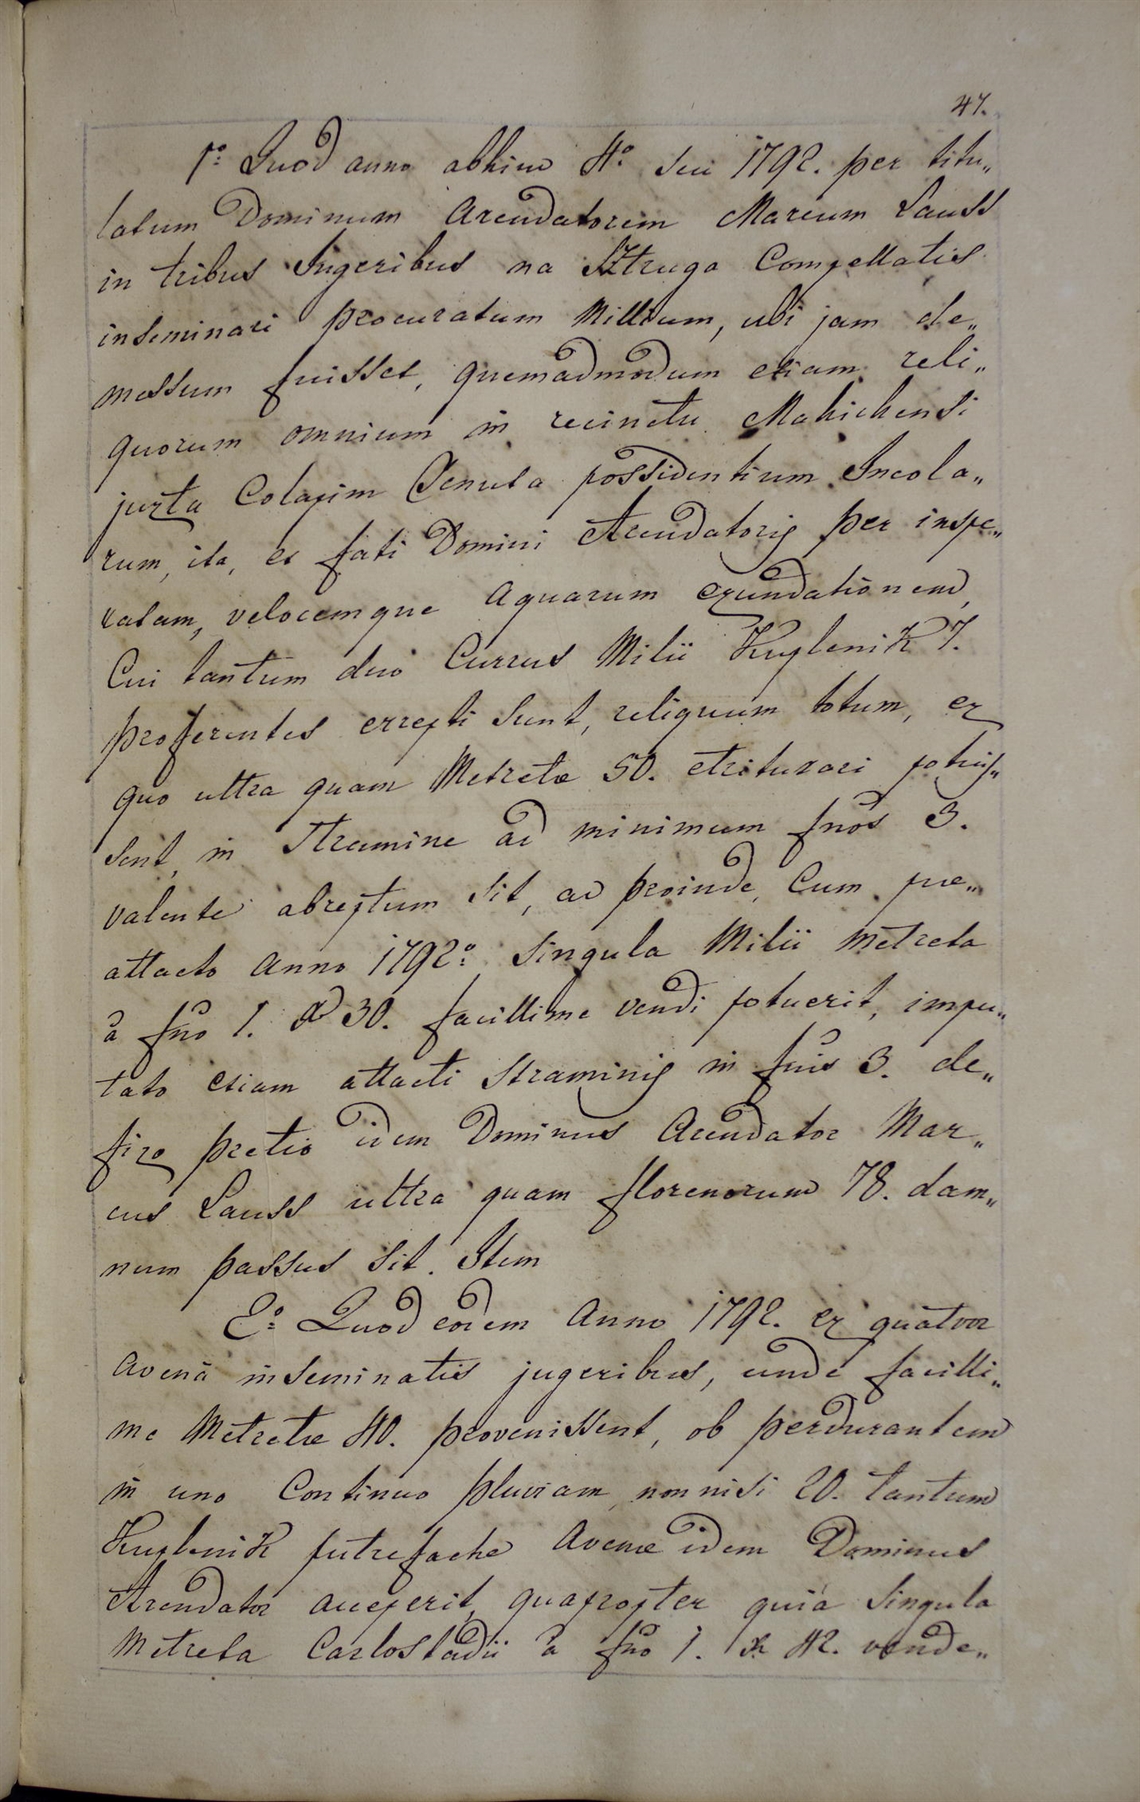 47.
1º Quod anno abhinc 4º seu 1792. per titu„
latum Dominum Arendatorem Marcum Lauss
in tribus Jugeribus na Sztruga Compellatis
inseminari procuratum Millium, ubi jam de„
messum fuisset, quemadmodum etiam reli„
quorum omnium in recinctu Mahichensi
juxta Colapim Tenuta possidentium Incola„
rum, ita, et fati Domini Arendatoris per inspe„
ratam, velocemque aquarum exundationem,
Cui tantum duo Currus Milii Kuplenik 7.
proferentes errepti sunt, reliquum totum, ex
quo ultra quam Metretæ 50. etriturari potuis„
sent, in Stramine ad minimum fnos 3.
valente abreptum sit, ac proinde, Cum præ„
attacto Anno 1792º singula Milii metreta
à fno 1. xr 30. facillime vendi potuerit, impu„
tato etiam attacti Straminis in fnis 3. de„
fixo pretio idem Dominus Arendator Mar„
cus Lauss ultra quam florenorum 78. dam„
num passus sit. Item
2º Quod eodem Anno 1792. ex quatvor
avenâ inseminatis jugeribus, unde facilli„
me Metretæ 40. provenissent, ob perdurantem
in uno Continuo pluviam, non nisi 20. tantum
Kuplenik putrefactæ Avenæ idem Dominus
Arendator acceperit, quapropter quia singula
Metreta Carlostadii à fno 1. xr 42. vende„